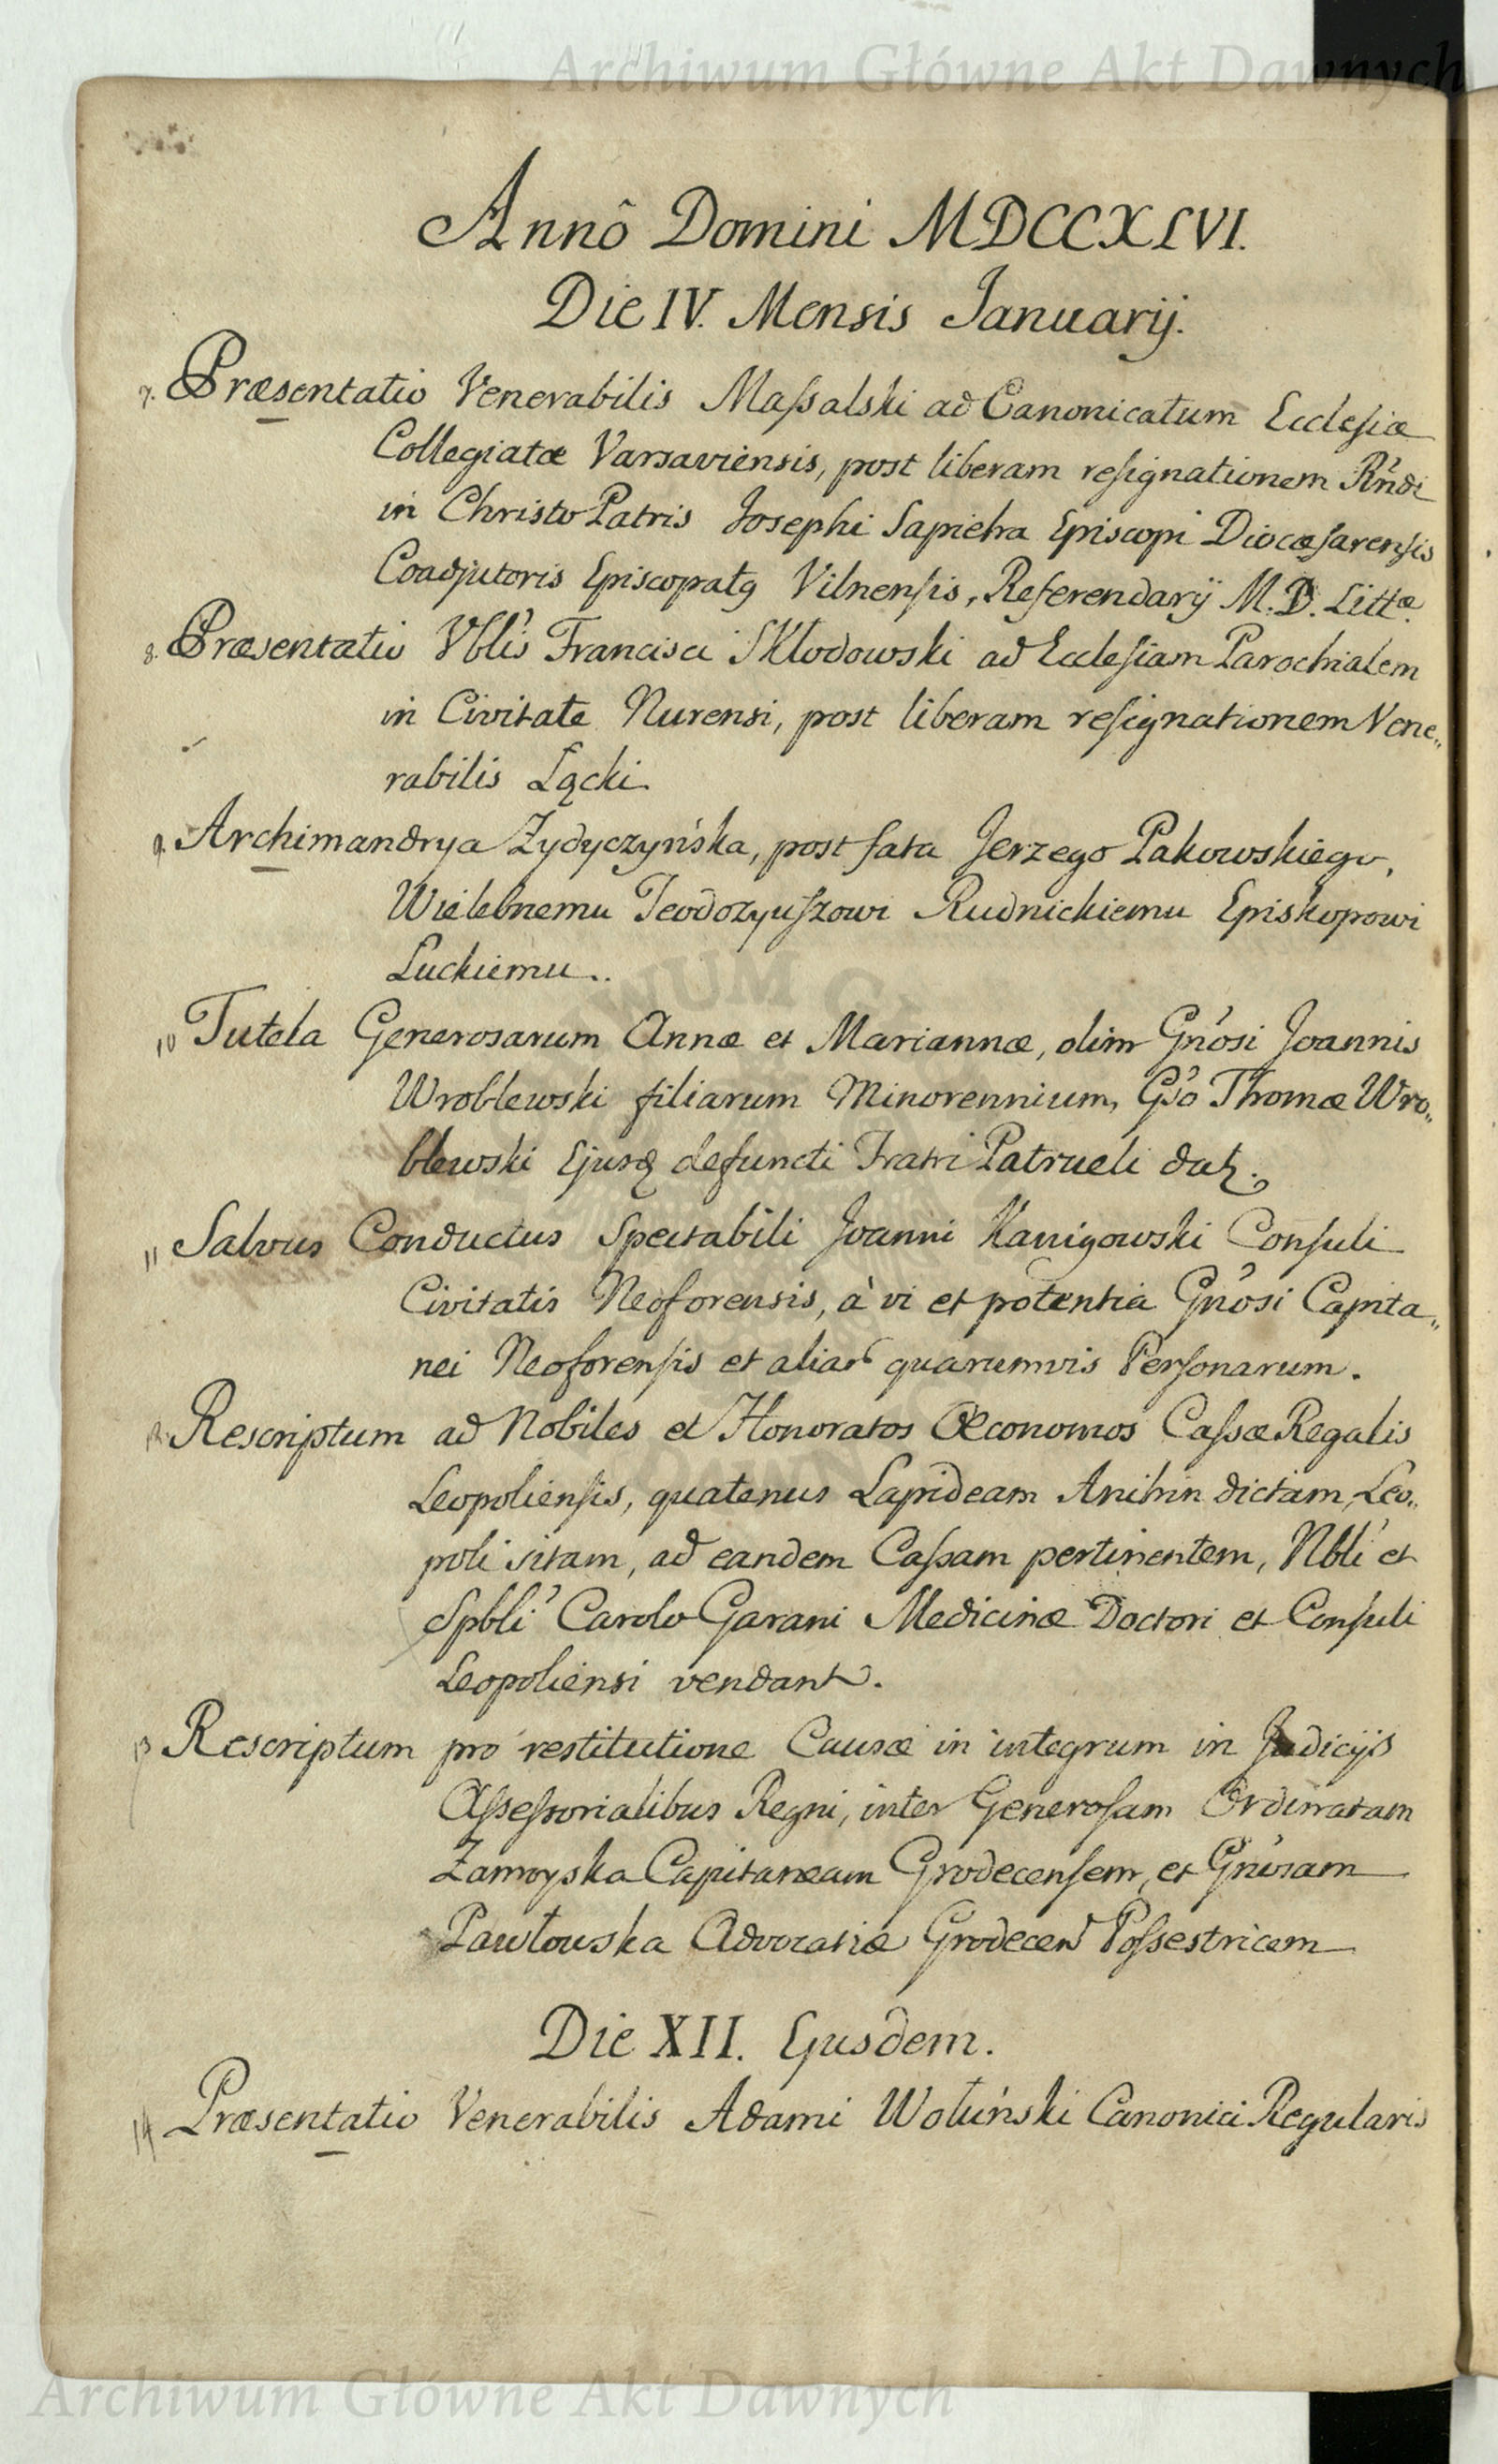 Archiwum Główne Akt Dawnych
Annô Domini MDCCXLVI.
Die IV. Mensis Januarij.
7. Præsentatio Venerabilis Maſsalski ad Canonicatum Eccleſiæ
Collegiatæ Varsaviensis, post liberam reſignationem Rńdi
in Christo Patris Josephi Sapieha Episcopi Diocæſarenſis
Coadjutoris Episcopatꝯ Vilnenſis, Referendarÿ M. D. Littæ.
8. Præsentatio Vblis Francisci Skłodowski ad Eccleſiam Parochialem
in Civitate Nurensi, post liberam reſignationem Vene„
rabilis Łącki.
9. Archimandrya Zydyczyńska, post fata Jerzego Pakowskiego,
Wielebnemu Teodozyuſzowi Rudnickiemu Episkopowi
Luckiemu..
10 Tutela Generosarum Annæ et Mariannæ, olim Gńosi Joannis
Wroblewski filiarum Minorennium, Gśo Thomæ Wro„
blewski Ejusꝗ defuncti Fratri Patrueli datꝫ.
11 Salvus Conductus Spectabili Joanni Kanigowski Conſuli
Civitatis Neoforensis, à vi et potentia Gńosi Capita„
nei Neoforenſis et aliar quarumvis Perſonarum.
12. Rescriptum ad Nobiles et Honoratos Œconomos Caſsæ Regalis
Leopolienſis, quatenus Lapideam Anihin dictam, Leo„
poli sitam, ad eandem Caſsam pertinentem, Nbli et
Spbli Carolo Garani Medicinæ Doctori et Conſuli
Leopoliensi vendant.
13 Rescriptum pro restitutione Causæ in integrum in Judicijs
Aſseſsorialibus Regni, inter Generoſam Ordinatam
Zamoyska Capitaneam Grodecenſem, et Gńosam
Pawłowska Advocatiæ Grodecen Poſsestricem
Die XII. Ejusdem.
14 Præsentatio Venerabilis Adami Wołuński Canonici Regularis
Archiwum Główne Akt Dawnych